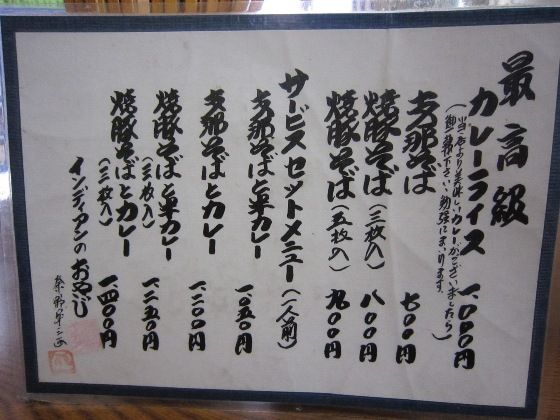 最高級
カレーライス 一、〇〇〇円
(当店より美味しいカレーがございましたら
御一報下さい、勉強にまいります。)
支那そば 七〇〇円
焼豚そば(三枚入) 八〇〇円
焼豚そば(五枚入) 九〇〇円
サービスセットメニュー(一人前)
支那そばと半カレー 一、〇五〇円
支那そばとカレー 一、二〇〇円
焼豚そばと半カレー(三枚入) 一、二五〇円
焼豚そばとカレー(三枚入) 一、四〇〇円
インディアンのおやじ